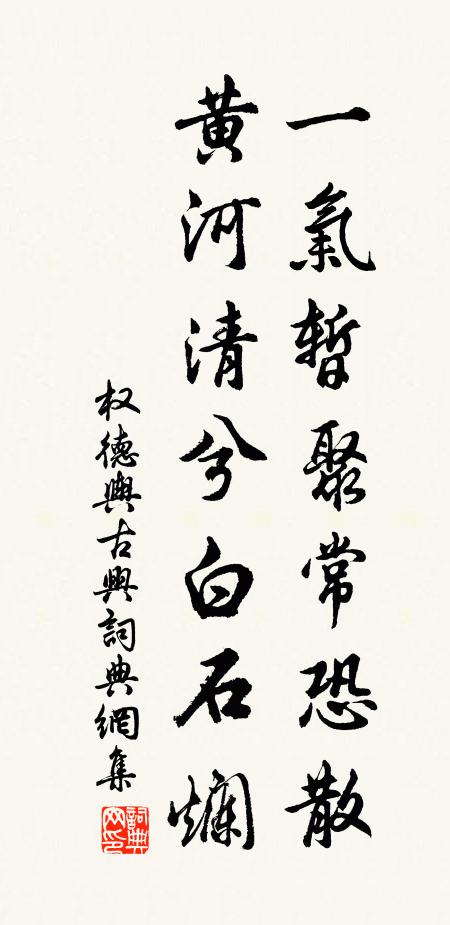 一氣暫聚常恐散
黃河清兮白石爛
权德輿古興詞典網集
詞典
网印